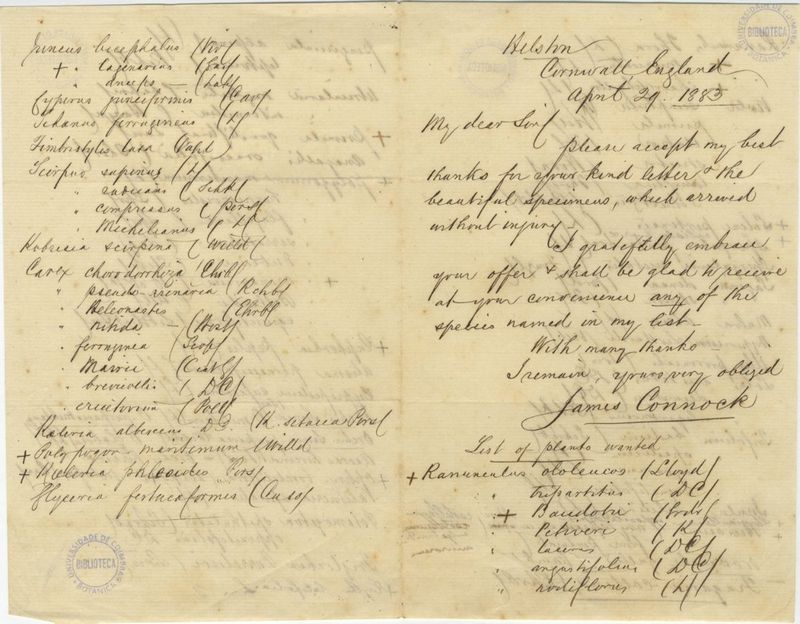 Helston
Cornwall England.
April 29. 1883
My dear Sir/
please accept my best
thanks for your kind letter & the
beautiful specimens, which arrived
without injury/
I gratefully embrace
your offer & shall be glad to receive
at your convenience any of the
species named in my list –
With many thanks
I remain, yours very obliged
James Connock
List of plants wanted
+ Ranunculus ololeucos (Lloyd/
" tripartitus (DC/
+ Baudotii (Godr/
" Petiveri (K/
" lacerus (DC/
" angustifolius (DC/
" nodiflorus (L/
Juncus bicephalus (Viv/
+ " lagenarius (Gay/
" anceps – (Lah/
Cyperus junciformis (Cav/
Schœnus ferrugineus (L/
Fimbristylis laxa (Vahl/
Scirpus supinus (L/
" radicans (Schk/
" compressus (Pers/
" Michelianus (L/
Kobresia scirpina (Willd/
Carex chordorrhiza (Ehrh/
" pseudo-arenaria (Rchb/
" Heleonastes (Ehrh/
" nitida – (Host/
" ferruginea (Scop/
" Mairii (Cust/
" brevicollis (DC/
" ericetorum (Poll/
Kœleria albescens DC (K. setacea Pers/
+ Polypogon maritimum (Willd
+ Kœleria phleoides Pers/
Glyceria festucæformis (
UNIVERSIDADE DE COIMBRA
BIBLIOTECA
BOTANICA
UNIVERSIDADE DE COIMBRA
BIBLIOTECA
BOTANICA